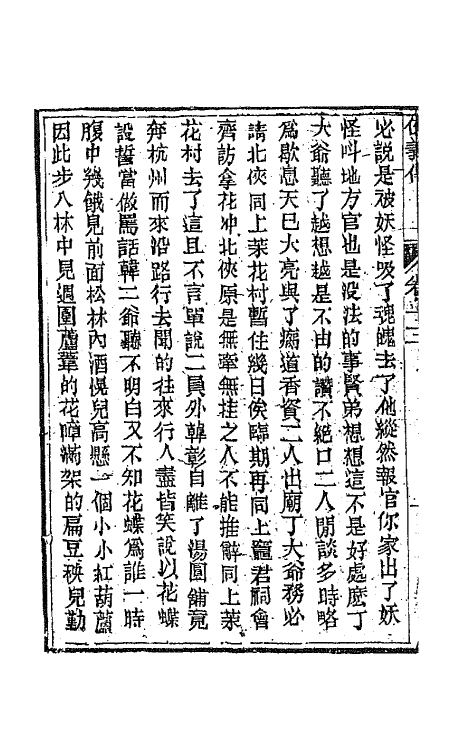 必説是被妖怪吸了魂魄去了他縱然報官你家出了妖
怪呌地方官也是没法的事賢弟想想這不是好處麽丁
大爺聽了越想越是不由的讚不絕口二人閒談多時略
爲歇息天已大亮與了廟道香資二人出廟丁大爺務必
請北俠同上茉花村暫住幾日俟臨期再同上竈君祠會
齊訪拿花冲北俠原是無牽無挂之人不能推辭同上茉
花村去了這且不言單說二員外韓彰自離了湯圓舖竟
奔杭州而來沿路行去聞的往來行人盡皆笑說以花蝶
設誓當做駡話韓二爺聽不明白又不知花蝶爲誰一時
腹中幾餓見前面松林內酒幌兒高懸一個小小紅葫蘆
因此步入林中見週圍蘆葦的花障滿架的扁豆秧兒勤